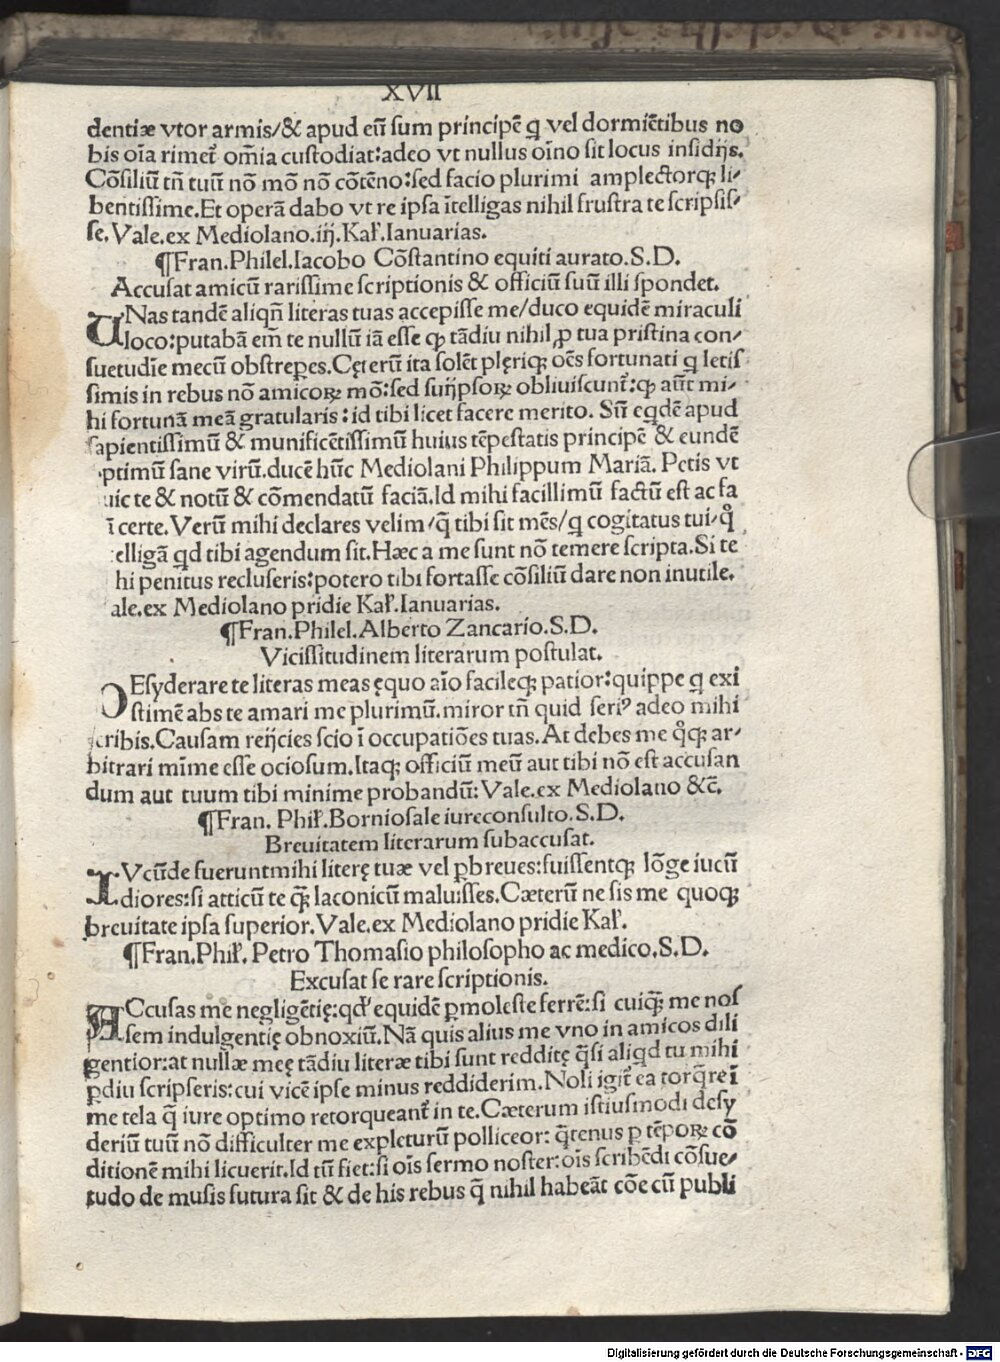 XVII
dentiæ vtor armis/& apud eū sum principē q vel dormiētibus no
bis oīa rimet᷑ omīa custodiat:adeo vt nullus oīno sit locus insidijs.
Cōsiliū tñ tuū nō mō nō cōtēno:sed facio plurimi amplectorqꝫ li⸗
bentissime.Et operā dabo vt re ipsa ītelligas nihil frustra te scripsis⸗
se.Vale.ex Mediolano.iij.Kał.Ianuarias.
¶Fran.Philel.Iacobo Cōstantino equiti aurato.S.D.
Accusat amicū rarissime scriptionis & officiū suū illi spondet.
UNas tandē aliqñ literas tuas accepisse me/duco equidē miraculi
loco:putabā em̄ te nullū iā esse qꝫ tādiu nihil ꝓ tua pristina con⸗
suetudīe mecū obstreꝑes.Cęterū ita solēt plęriqꝫ oēs fortunati q letis
simis in rebus nō amicoꝝ mō:sed suijpsoꝝ obliuiscunt᷑:qꝫ aūt mi⸗
hi fortunā meā gratularis:id tibi licet facere merito. Sū eqdē apud
sapientissimū & munificētissimū huius tēpestatis principē & eundē
ptimū sane virū.ducē hūc Mediolani Philippum Mariā. Petis vt
uic te & notū & cōmendatū faciā.Id mihi facillimū factū est ac fa
ī certe.Verū mihi declares velim/q̄ tibi sit mēs/q cogitatus tui/qͦ
elligā qd tibi agendum sit.Hæc a me sunt nō temere scripta.Si te
hi penitus recluseris:potero tibi fortasse cōsiliū dare non inutile.
ale.ex Mediolano pridie Kał.Ianuarias.
¶Fran.Philel.Alberto Zancario.S.D.
Vicissitudinem literarum postulat.
DEsyderare te literas meas ęquo aīo facileqꝫ patior:quippe q exi
stimē abs te amari me plurimū.miror tñ quid seriꝰ adeo mihi
scribis.Causam reijcies scio ī occupatiōes tuas.At debes me qͦqꝫ ar⸗
bitrari mīme esse ociosum.Itaqꝫ officiū meū aut tibi nō est accusan
dum aut tuum tibi minime probandū: Vale.ex Mediolano &c̄.
¶Fran. Phił.Borniosale iureconsulto.S.D.
Breuitatem literarum subaccusat.
IVcūde fueruntmihi literę tuæ vel ꝑbreues:fuissentqꝫ lōge iucū
diores:si atticū te q̄ꝫ laconicū maluisses.Cæterū ne sis me quoqꝫ
breuitate ipsa superior.Vale.ex Mediolano pridie Kał.
¶Fran.Phił. Petro Thomasio philosopho ac medico.S.D.
Excusat se rare scriptionis.
ACcusas me negligētię:qd' equidē ꝑmoleste ferrē:si cuiq̄ꝫ me nos
sem indulgentię obnoxiū.Nā quis alius me vno in amicos dili
gentior:at nullæ meę tādiu literæ tibi sunt redditę q̄si aliqd tu mihi
ꝑdiu scripseris:cui vicē ipse minus reddiderim.Noli igit᷑ ea torq̄re ī
me tela q̄ iure optimo retorqueant᷑ in te.Cæterum istiusmodi desy
deriū tuū nō difficulter me expleturū polliceor: q̄tenus ꝑ tēpoꝝ cō
ditionē mihi licuerit.Id tū fiet:si oīs sermo noster:oīs scribēdi cōsue⸗
tudo de musis futura sit & de his rebus q̄ nihil habeāt cōe cū publi
Digitalisierung gefördert durch die Deutsche Forschungsgemeinschaft - DFG